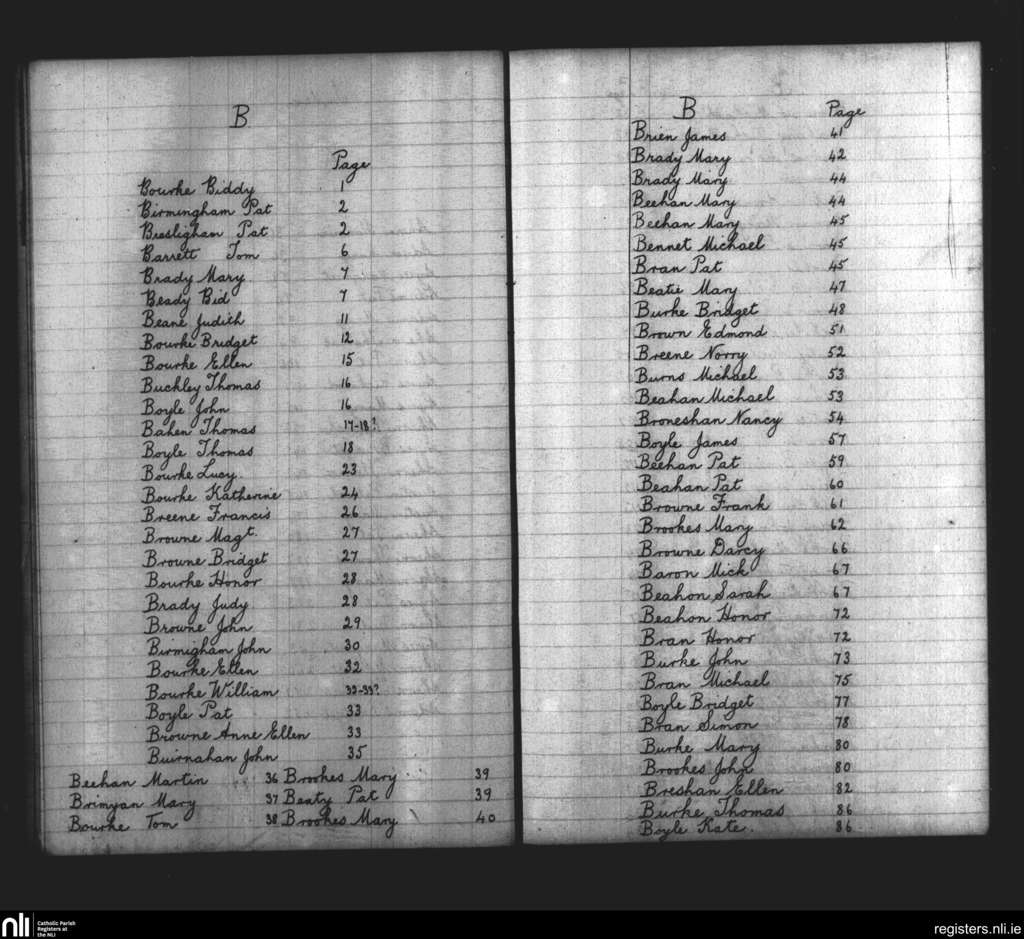 B
Page
Bourke Biddy 1
Birmingham Pat 2
Bresligham Pat 2
Barrett Tom 6
Brady Mary 7
Beady Bid 7
Beane Judith 11
Bourke Bridget 12
Bourke Ellen 15
Buckley Thomas 16
Boyle John 16
Bahen Thomas 17-18?
Boyle Thomas 18
Bourke Lucy. 23
Bourke Katherine 24
Breene Francis 26
Browne Magt. 27
Browne Bridget 27
Bourke Honor 28
Brady Judy 28
Browne John 29
Birmigham John 30
Bourke Ellen 32
Bourke William 33-33?
Boyle Pat 33
Browne Anne Ellen 33
Buirnahan John 35
Beehan Martin 36 Brookes Mary 39
Brimyan Mary 37 Beaty Pat 39
Bourke Tom 38 Brookes Mary 40
B Page
Brien James 41
Brady Mary 42
Brady Mary 44
Beehan Mary 44
Beehan Mary 45
Bennet Michael 45
Bran Pat 45
Beatie Mary 47
Burke Bridget 48
Brown Edmond 51
Breene Norry 52
Burns Michael 53
Beahan Michael 53
Broneshan Nancy 54
Boyle James 57
Beehan Pat 59
Beahan Pat 60
Browne Frank 61
Brookes Mary 62
Browne Darcy 66
Baron Mick 67
Beahon Sarah 67
Beahon Honor 72
Bran Honor 72
Burke John 73
Bran Michael 75
Boyle Bridget 77
Bran Simon 78
Burke Mary 80
Brookes John 80
Breshan Ellen 82
Burke Thomas 86
Boyle Kate. 86
nli Catholic Parish
Registers at
the NLI
registers.nli.ie